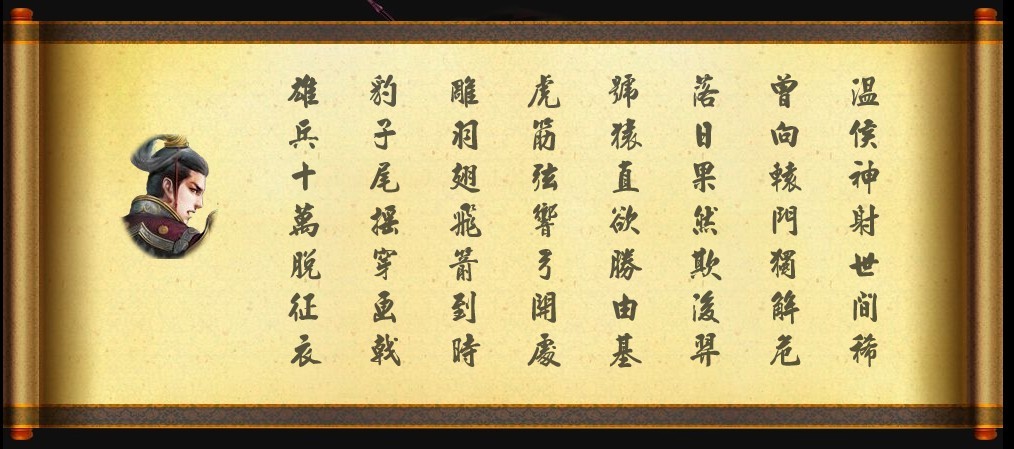 温侯神射世间稀
曾向轅門獨解危
落日果然欺後羿
號猿直欲勝由基
虎筋弦響弓開處
雕羽翅飛箭到時
豹子尾摇穿画戟
雄兵十萬脫征衣